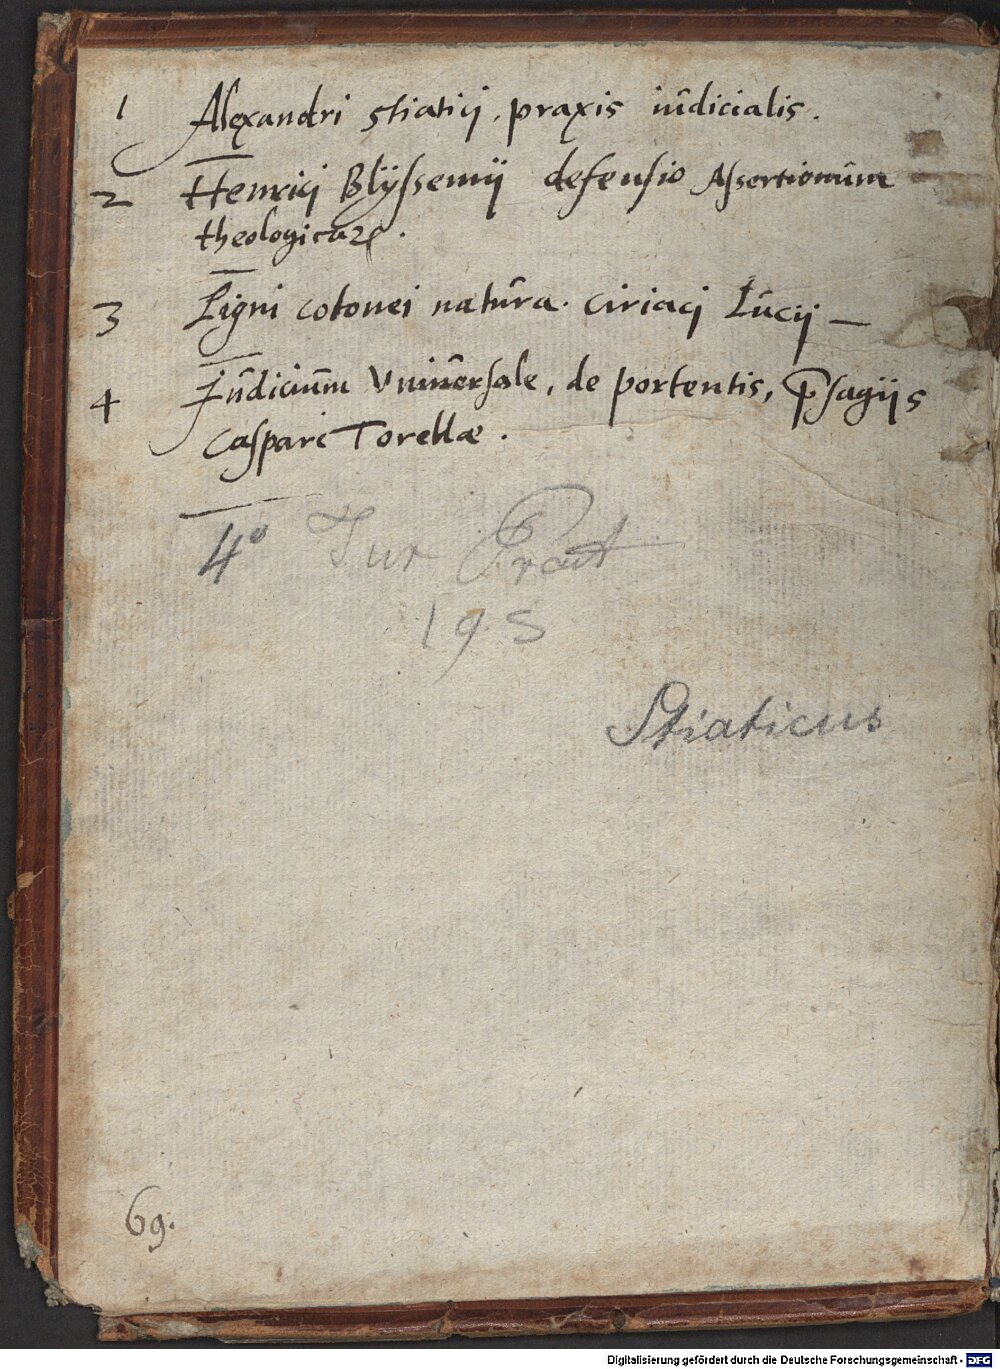 1 Alexandri Stiatici. praxis iudicialis.
2 Henrici Blyssemij defensio Assertionum
theologicarꝝ.
3 Ligni cotonei natura. Ciriaci Lucij —
4 Iudicium Vniuersale, de portentis, p̄sagijs
Caspari Torellæ.
4° Jur Pract
195
Stiaticus
69.
Digitalisierung gefördert durch die Deutsche Forschungsgemeinschaft - DFG